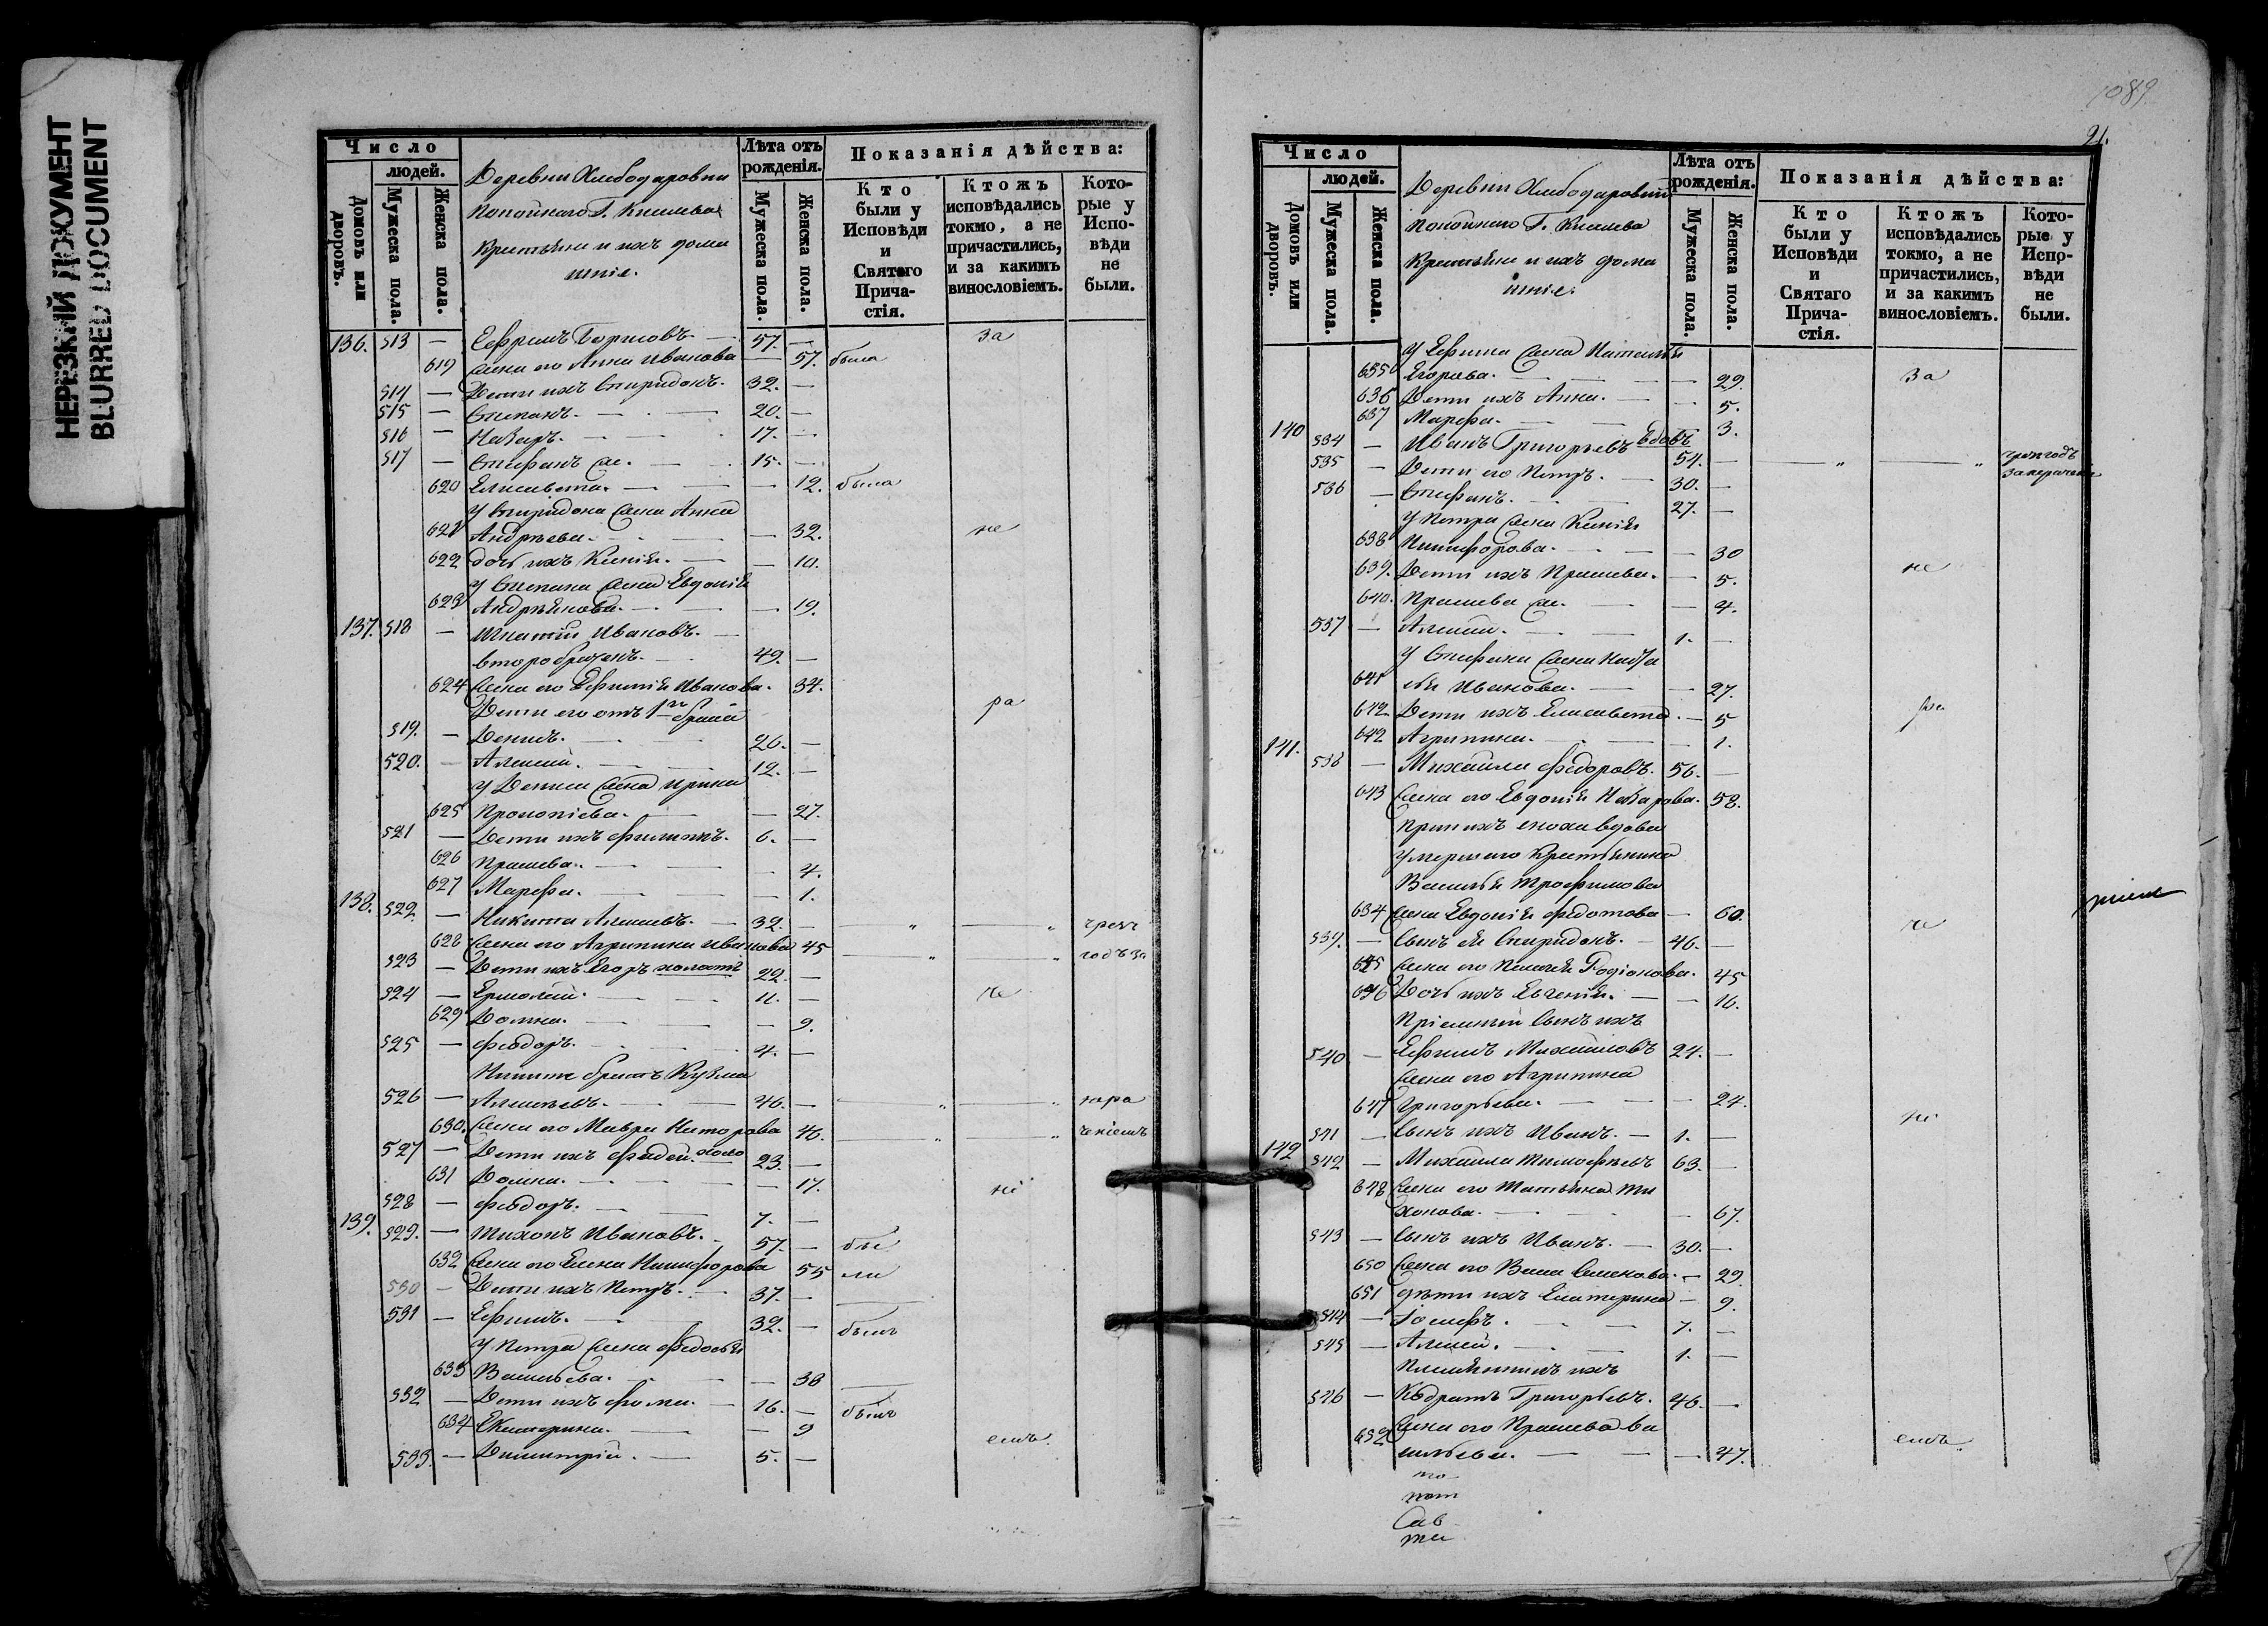 НЕРЕЗКИЙ ДОКУМЕНТ
BLURRED DOCUMENT
Число
людей.
Домовъ или дворовъ.
Мужеска пола.
Женска пола.
Деревни Хлебодаровки
покойнаго Г. Киселева
Крестьяне и ихъ дома
шніе.
Лѣта отъ рожденія.
Мужеска пола.
Женска пола.
Показанія дѣйства:
Кто были у Исповѣди и Святаго Причастія.
Ктожъ исповѣдались токмо, а не причастились, и за какимъ винословіемъ.
Которые у Исповѣди не были.
136. 513 — Ефремъ Борисовъ — 57. — за
619 Жена его Анна Иванова — 57. была
514 — Дети ихъ Спиридонъ. 32. —
515 — Степанъ. — 20. —
516 — Назаръ. — 17. —
517 — Стефанъ — 15. —
620 Елисавета. — 12. была
У Спиридона жена Анна
621 Андреева. — 32. не
622 дочь ихъ Ксенія. — 10.
У Степана жена Евдокія
623 Андреянова. — 19.
137. 518 — Игнатій Ивановъ. —
второбраченъ. — 49. —
624 Жена его Ефимія Иванова. 34.
Дети его отъ 1го брака ра
519. — Денисъ. — 26. —
520. — Алексей. — 12. —
У Дениса жена Ирина
625 Прокопіева. — 27.
521 — Дети ихъ Филиппъ. 6. —
626 Прасковья. — 4.
627 Марфа. — 1.
138. 522. — Никита Алексеевъ. — 32. — „ — „ чрезъ
628 Жена его Агрипина Иванова 45 — „ „ годъ за
523 — Дети ихъ Егоръ холостъ 22. —
524 — Ермолай. — 11. — че
629 Домна. — 9.
525 — Феодоръ. — 4. —
Никиты братъ Кузма
526 — Алексеевъ. — 46. — „ — „ пера
630. Жена его Мавра 46. — „ — „ ченіемъ
527 — Дети ихъ Фадей. холо 23. —
631 Домна. — 17. ні
528 — Феодоръ. — 7. —
139. 529. — Тихонъ Ивановъ. — 57. — бы
632 Жена его Елена Никифорова 55 ли
530 — Дети ихъ Петръ. — 37. —
531 — Ефимъ. — 32. — былъ
У Петра жена Федосья
633 Васильева. — 38
532 — Дети ихъ Фома. — 16. — былъ
634 Екатерина. — 9
533. — Димитрій. — 5. — емъ.
1089
91.
Число
людей.
Домовъ или дворовъ.
Мужеска пола.
Женска пола.
Деревни Хлебодаровки
покойнаго Г. Киселева
Крестьяне и ихъ дома
шніе.
Лѣта отъ рожденія.
Мужеска пола.
Женска пола.
Показанія дѣйства:
Кто были у Исповѣди и Святаго Причастія.
Ктожъ исповѣдались токмо, а не причастились, и за какимъ винословіемъ.
Которые у Исповѣди не были.
У Ефима жена Наталья
635 Егорова. — 29. за
636 Дети ихъ Анна. — 5.
637 Марфа. — 3.
140 534 — Иванъ Григорьевъ вдовъ 54. — „ — „ чрезъ годъ
535 — Дети его Петръ. — 30. —
536 — Стефанъ. — 27. —
У Петра жена Ксенія
638 Никифорова. — 30
639. Дети ихъ Прасковья. — 5. не
640. Прасковья — 4.
537 — Алексей. — 1. —
У Стефана жена
641 Иванова. — 27.
642 Дети ихъ Елисавета. — 5 ра
642 Агрипина. — 1.
141. 538 — Михайла Федоровъ. 56. —
643 Жена его Евдокія Назарова. 58.
При ихъ вдова
умершаго Крестьянина
Василья Трофимова
634 жена Евдокія Федотова — 60. че
539. — Сынъ ея Спиридонъ. — 46. —
645 Жена его Пелагея Родіонова. 45
646 Дочь ихъ Евгенія. — 16.
Пріемный сынъ ихъ
540 — Ефимъ Михайловъ 24. —
Жена его Агрипина
647 Григорьева. — 24.
541 — Сынъ ихъ Иванъ. — 1. — ні
142 542 — Михаила Тимофеевъ 63. —
648 Жена его Татьяна Ти
хонова. — 67.
543 — Сынъ ихъ Иванъ. — 30. —
650 Жена его Васа Семенова. — 29.
651 Дѣти ихъ Екатерина — 9.
544 — Іосифъ. — 7. —
545 — Алексей. — 1. —
Племянникъ ихъ
546 — Кодратъ Григорьевъ. 46. —
652 Жена его Прасковья Ва
сильева. — 47. емъ.